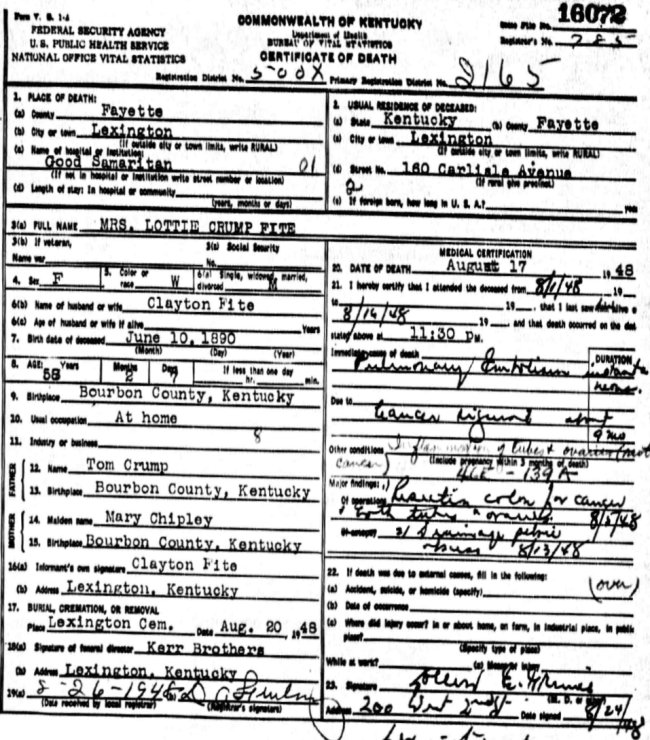 Form V. S. 1-A
FEDERAL SECURITY AGENCY
U. S. PUBLIC HEALTH SERVICE
NATIONAL OFFICE VITAL STATISTICS
COMMONWEALTH OF KENTUCKY
Department of Health
BUREAU OF VITAL STATISTICS
CERTIFICATE OF DEATH
State File No. 16072
Registrar's No. 785
Registration District No. 500X Primary Registration District No. 2165
1. PLACE OF DEATH:
(a) County Fayette
(b) City or town Lexington
(If outside city or town limits, write RURAL)
(c) Name of hospital or institution:
Good Samaritan 01
(If not in hospital or institution write street number or location)
(d) Length of stay: In hospital or community
(years, months or days)
2. USUAL RESIDENCE OF DECEASED:
(a) State Kentucky (b) County Fayette
(c) City or town Lexington
(If outside city or town limits, write RURAL)
(d) Street No. 160 Carlisle Avenue
(If rural give precinct)
(e) If foreign born, how long in U. S. A.?
3(a) FULL NAME MRS. LOTTIE CRUMP FITE
3(b) If veteran,
Name war
3(c) Social Security
No.
4. Sex F
5. Color or
race W
6(a) Single, widowed, married,
divorced M
6(b) Name of husband or wife Clayton Fite
6(c) Age of husband or wife if alive Years
7. Birth date of deceased June 10, 1890
(Month) (Day) (Year)
8. AGE: Years 58 Months 2 Days 7
If less than one day
hr. min.
9. Birthplace Bourbon County, Kentucky
10. Usual occupation At home
11. Industry or business 8
FATHER
12. Name Tom Crump
13. Birthplace Bourbon County, Kentucky
MOTHER
14. Maiden name Mary Chipley
15. Birthplace Bourbon County, Kentucky
16(a) Informant's own signature Clayton Fite
(b) Address Lexington, Kentucky
17. BURIAL, CREMATION, OR REMOVAL
Place Lexington Cem. Date Aug. 20 1948
18(a) Signature of funeral director Kerr Brothers
(b) Address Lexington, Kentucky
19(a) 8-26-1948
(Date received by local registrar) (Registrar's signature)
MEDICAL CERTIFICATION
20. DATE OF DEATH August 17 1948
21. I hereby certify that I attended the deceased from 8/1/48 19
to 8/16/48 19, that I last saw alive
19 and that death occurred on the date
stated above at 11:30 Pm.
Immediate cause of death DURATION
Pulmonary Embolism
Due to
Cancer Sigmoid about
9 mo
Other conditions Inflammation of tubes & ovaries (not
cancer) (Include pregnancy within 3 months of death)
46E - 139A
Major findings:
Of operations Resection colon for cancer
& both tubes & ovaries 8/2/48
Of autopsy Drainage pelvic
abscess 8/13/48
22. If death was due to external causes, fill in the following: (over)
(a) Accident, suicide, or homicide (specify)
(b) Date of occurrence
(c) Where did injury occur? In or about home, on farm, in industrial place, in public
place?
(Specify type of place)
While at work? (e) Means of injury
23. Signature
(M. D. or other)
Address 200 West 2nd St. Date signed 8/24/48